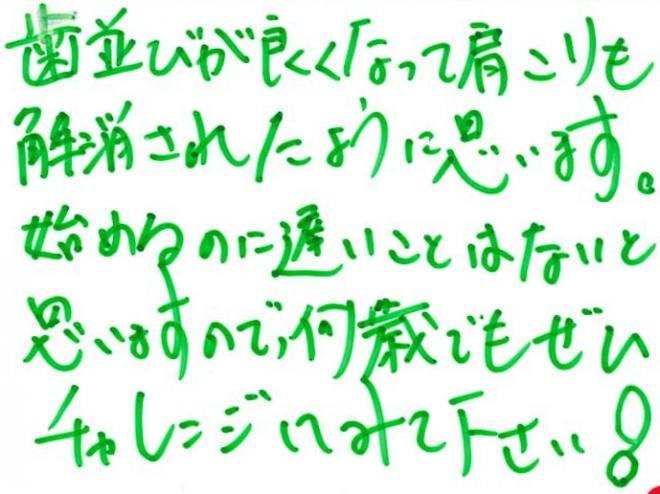 歯並びが良くなって肩こりも
解消されたように思います。
始めるのに遅いことはないと
思いますので、何歳でもぜひ
チャレンジしてみて下さい!